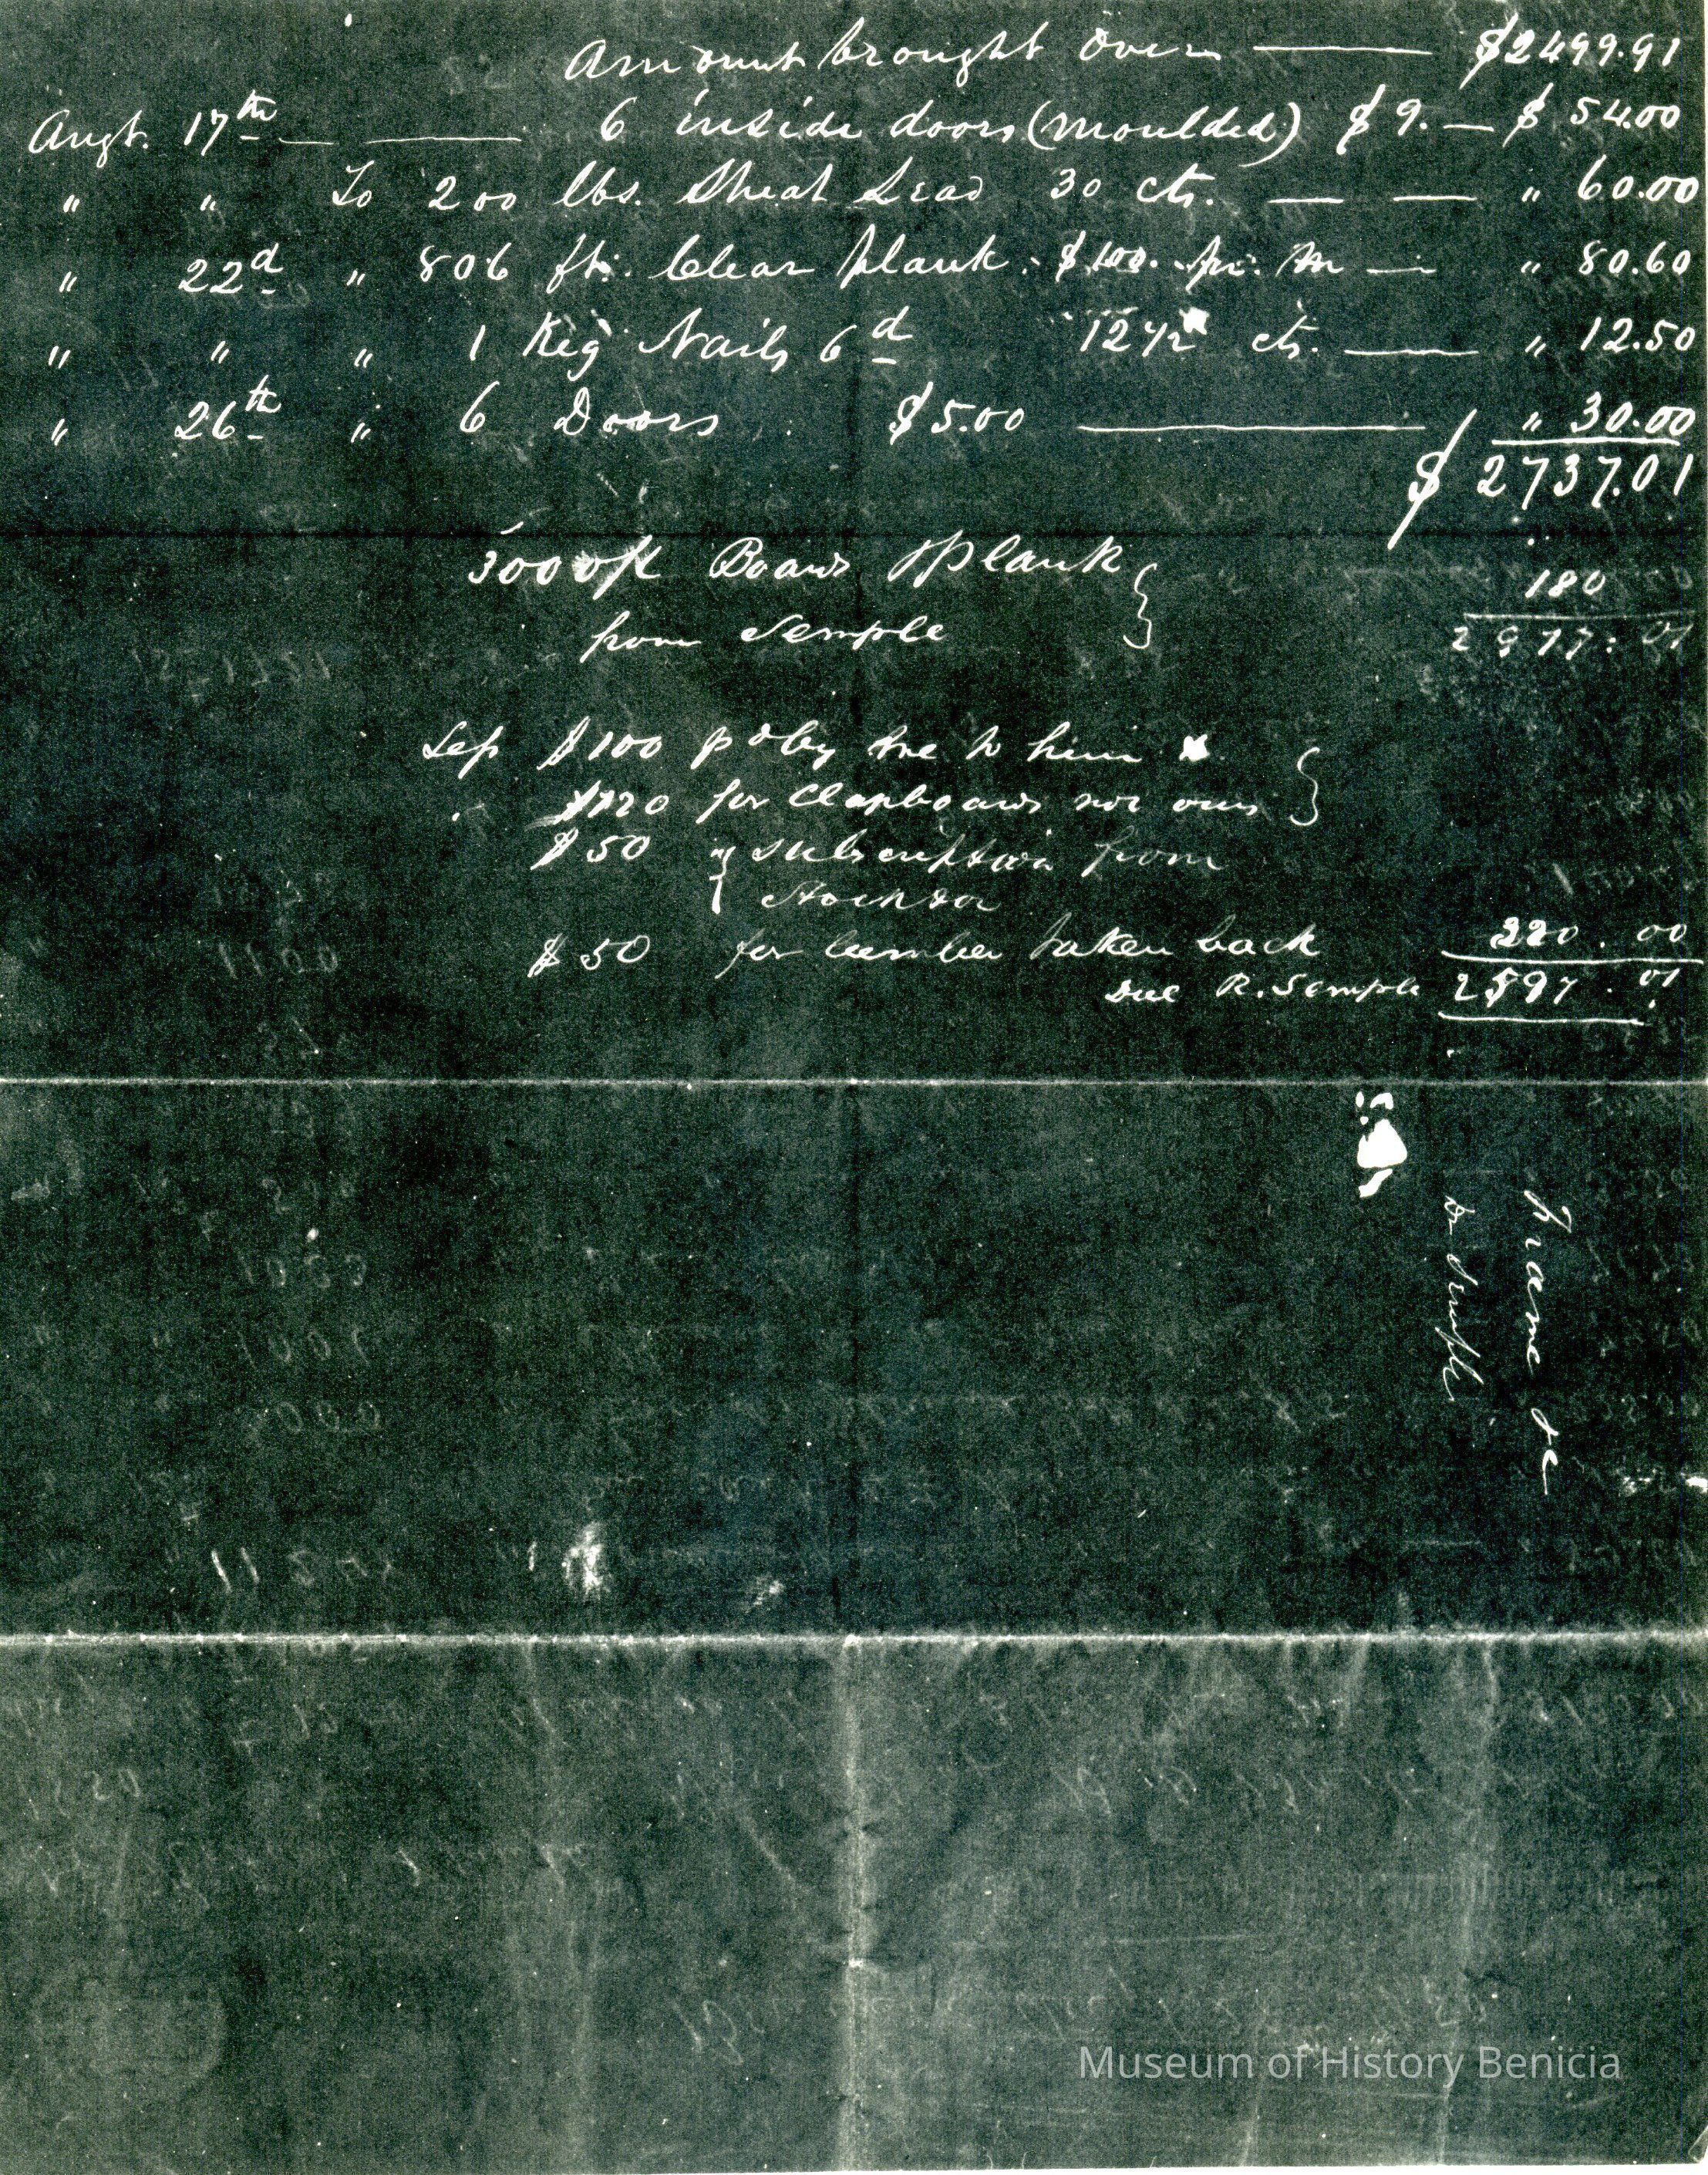 Amount brought over — $2499.91
Augt. 17th — — 6 inside doors (moulded) $9. — $ 54.00
" " To 200 lbs. Sheat Lead 30 cts. — — " 60.00
" 22d " 806 ft. Clear plank. $100. pr. M — " 80.60
" " " 1 Keg Nails 6d 12½ cts. — " 12.50
" 26th " 6 Doors $5.00 — " 30.00
$ 2737.01
3000 ft Boards & Plank } 180
from Semple 2917.01
Less $100 pd by me to him }
$120 for Clapboards not ours
$50 } subscription from
Stockton
$50 for lumber taken back 220.00
Due R. Semple 2597.01
Frame &c
Dr Semple
Museum of History Benicia